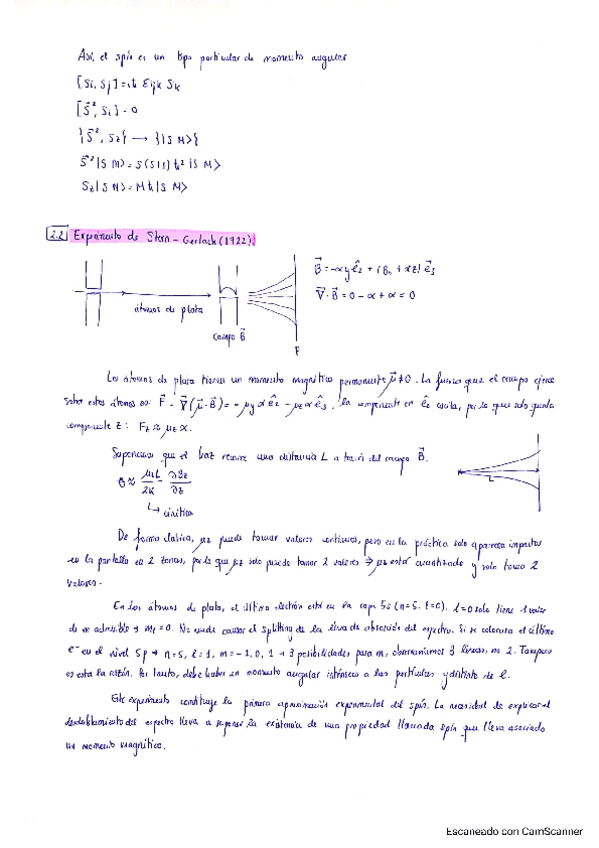 Así, el spín es un tipo particular de momento angular
[Si, Sj] = iħ Εijk Sk
[S⃗², Si] = 0
{S⃗², Sz} → {|S M>}
S⃗²|S M> = S(S+1)ħ²|S M>
Sz|S M> = Mħ|S M>
2.2 Experimento de Stern-Gerlach (1922).
átomos de plata
campo B⃗
F
B⃗ = -αy ê2 + (B0 + αz) ê3
∇⃗·B⃗ = 0 - α + α = 0
Los átomos de plata tienen un momento magnético permanente μ⃗ ≠ 0. La fuerza que el campo ejerce
sobre estos átomos es: F⃗ = ∇⃗(μ⃗·B⃗) = -μy α ê2 - μz α ê3. La componente en ê2 oscila, por lo que solo queda
componente z: Fz ≈ μz α.
Suponemos que el haz recorre una distancia L a través del campo B⃗.
θ ≈ μL/2K ∂Bz/∂z
L
↳ cinética
De forma clásica, μz puede tomar valores continuos, pero en la práctica solo aparecen impactos
en la pantalla en 2 zonas, por lo que μz solo puede tomar 2 valores ⇒ μz está cuantizado y solo toma 2
valores.
En los átomos de plata, el último electrón está en la capa 5s (n=5, l=0). l=0 solo tiene 1 valor
de m admisible → ml = 0. No puede causar el splitting de la línea de observación del espectro. Si se colocara el último
e⁻ en el nivel 5p → n=5, l=1, m = -1, 0, 1 → 3 posibilidades para m, observaríamos 3 líneas, no 2. Tampoco
es esta la razón. Por tanto, debe haber un momento angular intrínseco a las partículas y distinto de l.
Este experimento constituye la primera aproximación experimental del spín. La necesidad de explicar el
desdoblamiento del espectro lleva a suponer la existencia de una propiedad llamada spín que lleva asociado
un momento magnético.
Escaneado con CamScanner